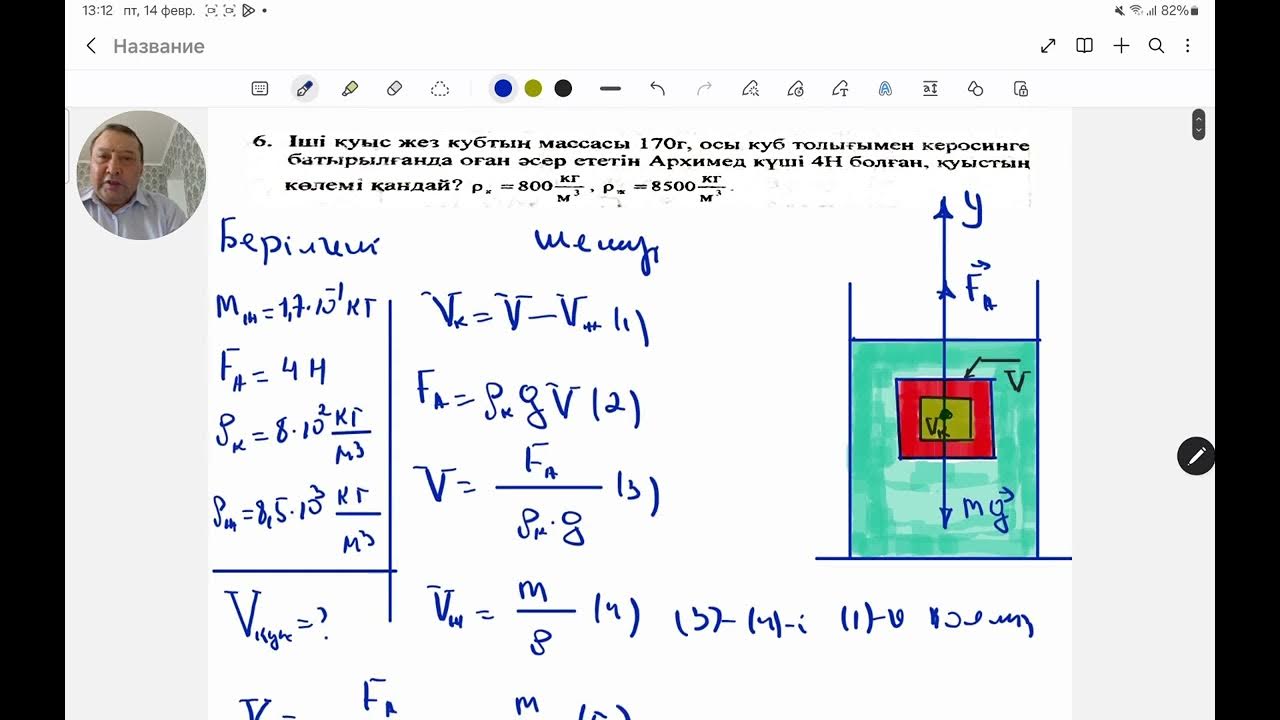 13:12 пт, 14 февр.
82%
Название
6. Іші қуыс жез кубтың массасы 170г, осы куб толығымен керосинге
батырылғанда оған әсер ететін Архимед күші 4Н болған, қуыстың
көлемі қандай? ρк = 800 кг/м³, ρж = 8500 кг/м³.
Берілгені
шешуі
mж = 1,7·10⁻¹ кг
FА = 4 Н
ρк = 8·10² кг/м³
ρж = 8,5·10³ кг/м³
Vқуыс = ?
Vк = V – Vж (1)
FА = ρк g V (2)
V = FА / ρк·g (3)
Vж = m / ρ (4)
(3)-(4)-і (1)-ө
V = FА m (5)
y
FА
V
Vк
mg